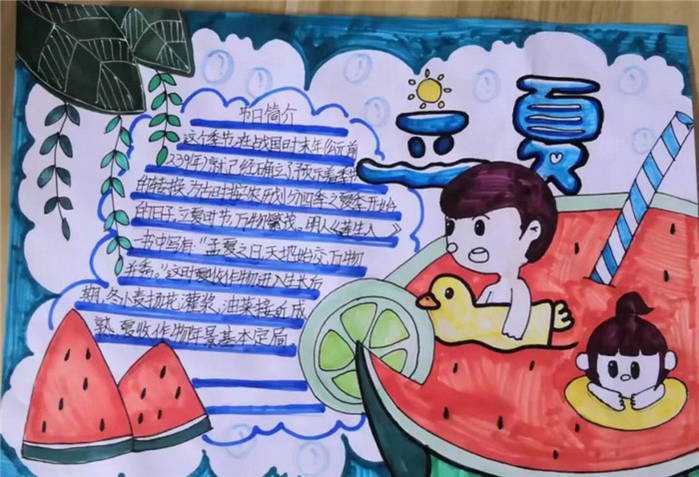 立夏
节日简介
这个季节在战国时末年公元前
239年)就已经确立了预示着季节
的转换,为古时按农历划分四季之夏季开始
的日子。夏时节万物繁茂。明人《莲生八》
一书中写有:"孟夏之日,天地始交,万物
并秀。"这时夏收作物进入生长后
期,冬小麦扬花灌浆,油菜接近成
熟,夏收作物年景基本定局